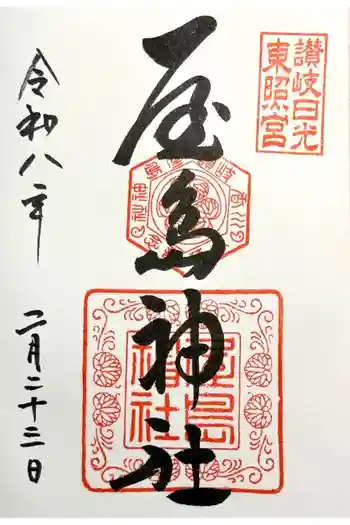 讃岐日光
東照宮
屋島神社
屋島神社
令和八年
二月二十三日